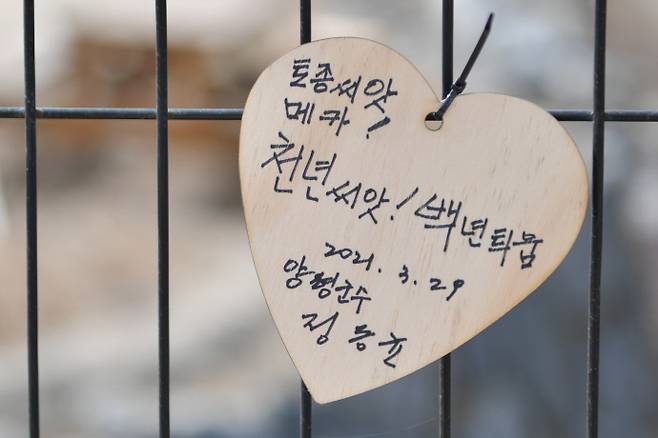 토종씨앗
메카!
천년씨앗! 백년틔움
2021. 3. 29
양평군수
정동균